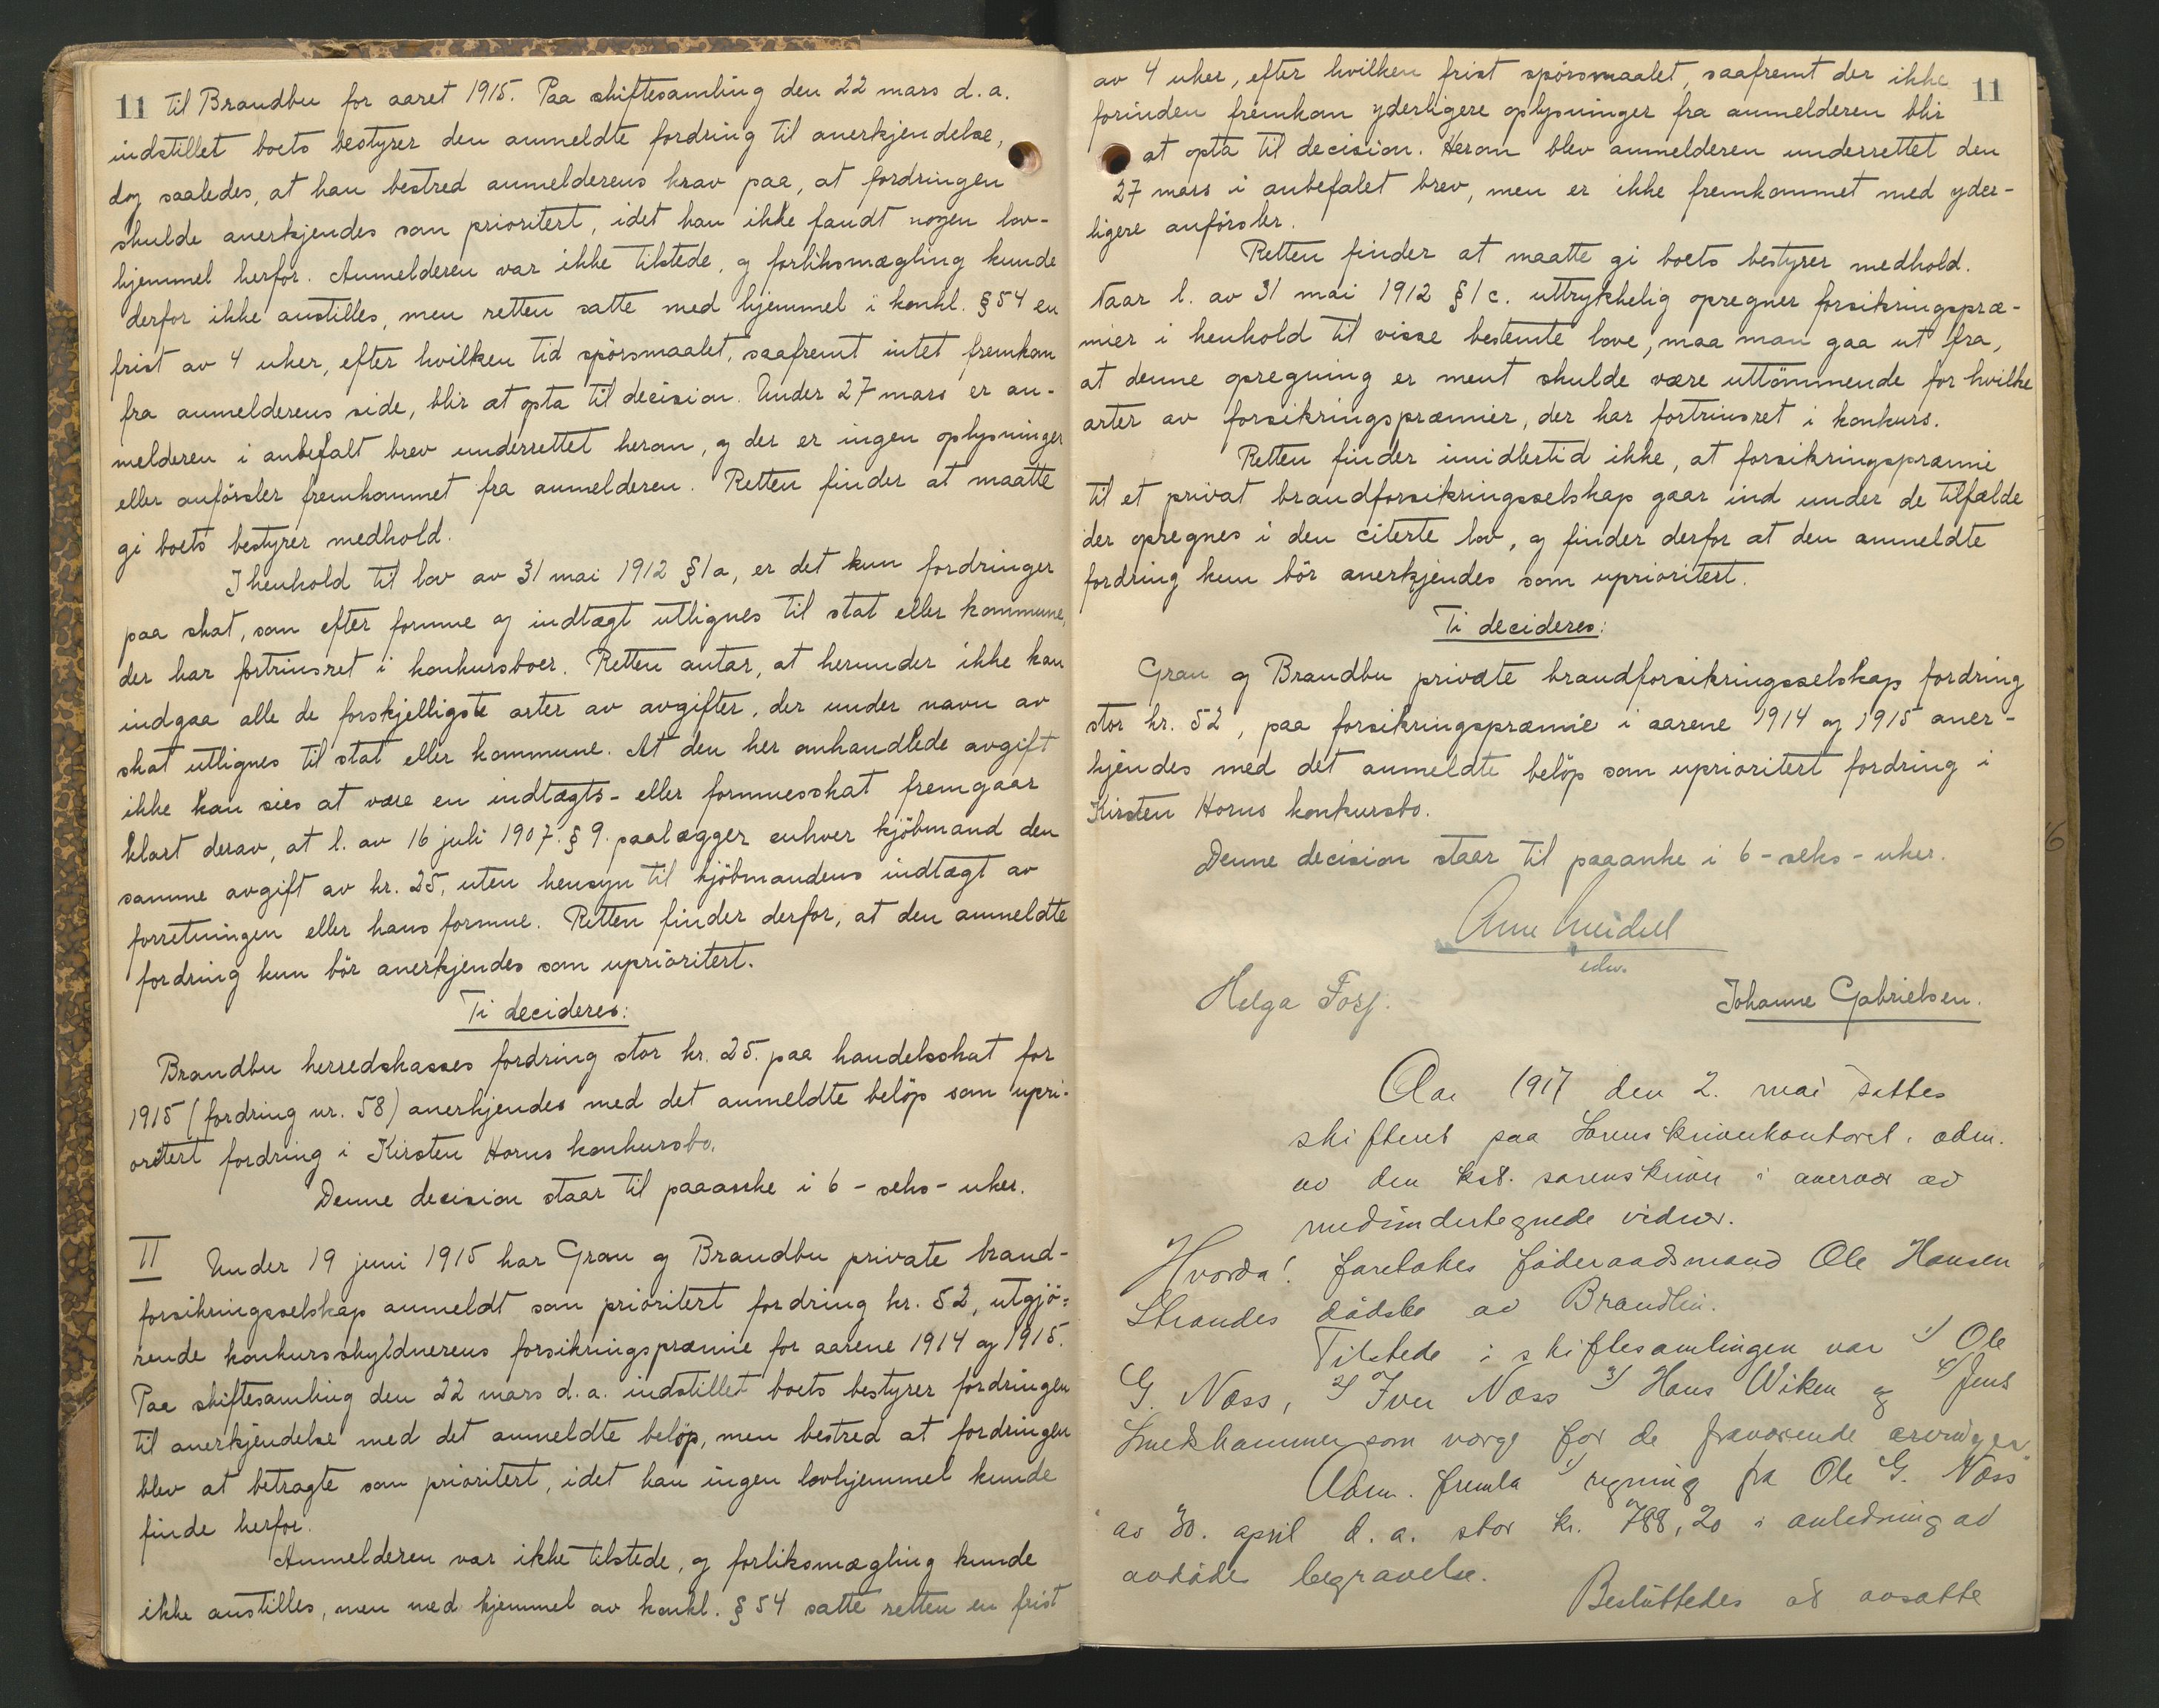 11 til Brandbu for aaret 1915. Paa skiftesamling den 22 mars d. a.
indstillet boets bestyrer den anmeldte fordring til anerkjendelse,
dog saaledes, at han bestred anmelderens krav paa, at fordringen
skulde anerkjendes som prioritert, idet han ikke fandt nogen lov-
hjemmel herfor. Anmelderen var ikke tilstede, og forliksmægling kunde
derfor ikke anstilles, men retten satte med hjemmel i konkl. § 54 en
frist av 4 uker, efter hvilken tid spörsmaalet, saafremt intet fremkom
fra anmelderens side, blir at opta til decision. Under 27 mars er an-
melderen i anbefalt brev underrettet herom, og der er ingen oplysninger
eller anförsler fremkommet fra anmelderen. Retten finder at maatte
gi boets bestyrer medhold.
I henhold til lov av 31 mai 1912 § 1a, er det kun fordringer
paa skat, som efter formue og indtægt utlignes til stat eller kommune,
der har fortrinsret i konkursboer. Retten antar, at herunder ikke kan
indgaa alle de forskjelligste arter av avgifter, der under navn av
skat utlignes til stat eller kommune. At den her omhandlede avgift
ikke kan sies at være en indtægts- eller formuesskat fremgaar
klart derav, at l. av 16 juli 1907 § 9. paalægger enhver kjöbmand den
samme avgift av kr. 25, uten hensyn til kjöbmandens indtægt av
forretningen eller hans formue. Retten finder derfor, at den anmeldte
fordring kun bör anerkjendes som uprioritert.
Ti decideres:
Brandbu herredskasses fordring stor kr. 25. paa handelsskat for
1915 (fordring nr. 58) anerkjendes med det anmeldte belöp som upri-
oritert fordring i Kirsten Horns konkursbo.
Denne decision staar til paaanke i 6 - seks - uker.
II Under 19 juni 1915 har Gran og Brandbu private brand-
forsikringsselskap anmeldt som prioritert fordring kr. 52, utgjö-
rende konkursskyldnerens forsikringspræmie for aarene 1914 og 1915.
Paa skiftesamling den 22 mars d. a. indstillet boets bestyrer fordringen
til anerkjendelse med det anmeldte belöp, men bestred at fordringen
blev at betragte som prioritert, idet han ingen lovhjemmel kunde
finde herfor.
Anmelderen var ikke tilstede, og forliksmægling kunde
ikke anstilles, men med hjemmel av konkl. § 54 satte retten en frist
av 4 uker, efter hvilken frist spörsmaalet, saafremt der ikke 11
forinden fremkom yderligere oplysninger fra anmelderen blir
at opta til decision. Herom blev anmelderen underrettet den
27 mars i anbefalet brev, men er ikke fremkommet med yder-
ligere anförsler.
Retten finder at maatte gi boets bestyrer medhold.
Naar l. av 31 mai 1912 § 1 c. uttrykkelig opregner forsikringspræ-
mier i henhold til visse bestemte love, maa man gaa ut fra,
at denne opregning er ment skulde være uttömmende for hvilke
arter av forsikringspræmier, der har fortrinsret i konkurs.
Retten finder imidlertid ikke, at forsikringspræmie
til et privat brandforsikringsselskap gaar ind under de tilfælde
der opregnes i den citerte lov, og finder derfor at den anmeldte
fordring kun bör anerkjendes som uprioritert.
Ti decideres:
Gran og Brandbu private brandforsikringsselskap fordring
stor kr. 52, paa forsikringspræmie i aarene 1914 og 1915 aner-
kjendes med det anmeldte belöp som uprioritert fordring i
Kirsten Horns konkursbo.
Denne decision staar til paaanke i 6 - seks - uker.
Arne Meidell
edv.
Helga Forf. Johanne Gabrielsen.
Aar 1917 den 2. mai sattes
skifteret paa Sorenskriverkontoret, adm.
av den kst. sorenskriver i overvær av
medundertegnede vidner.
Hvorda! foretokes föderaadsmand Ole Hansen
Strandes dödsbo av Brandbu.
Tilstede i skiftesamlingen var 1) Ole
G. Næss, 2) Iver Næss 3) Hans Wiken og 4) Jens
som værge for de fraværende arvinger.
Adm. fremla 1) regning fra Ole G. Næss
av 30. april d. a. stor kr. 788,20 i anledning av
avdödes begravelse.
Besluttedes at avsætte